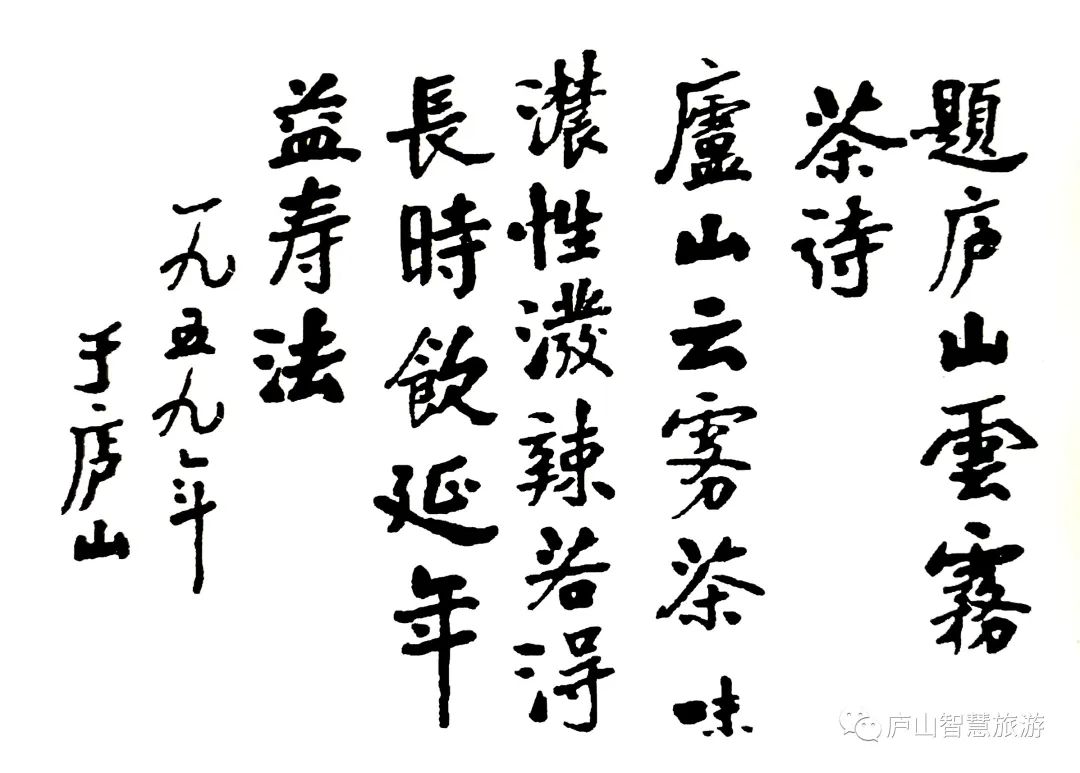 題庐山雲霧
茶诗
廬山云雾茶味
濃性潑辣若淂
長時飲延年
益寿法
一九五九年
于庐山
庐山智慧旅游